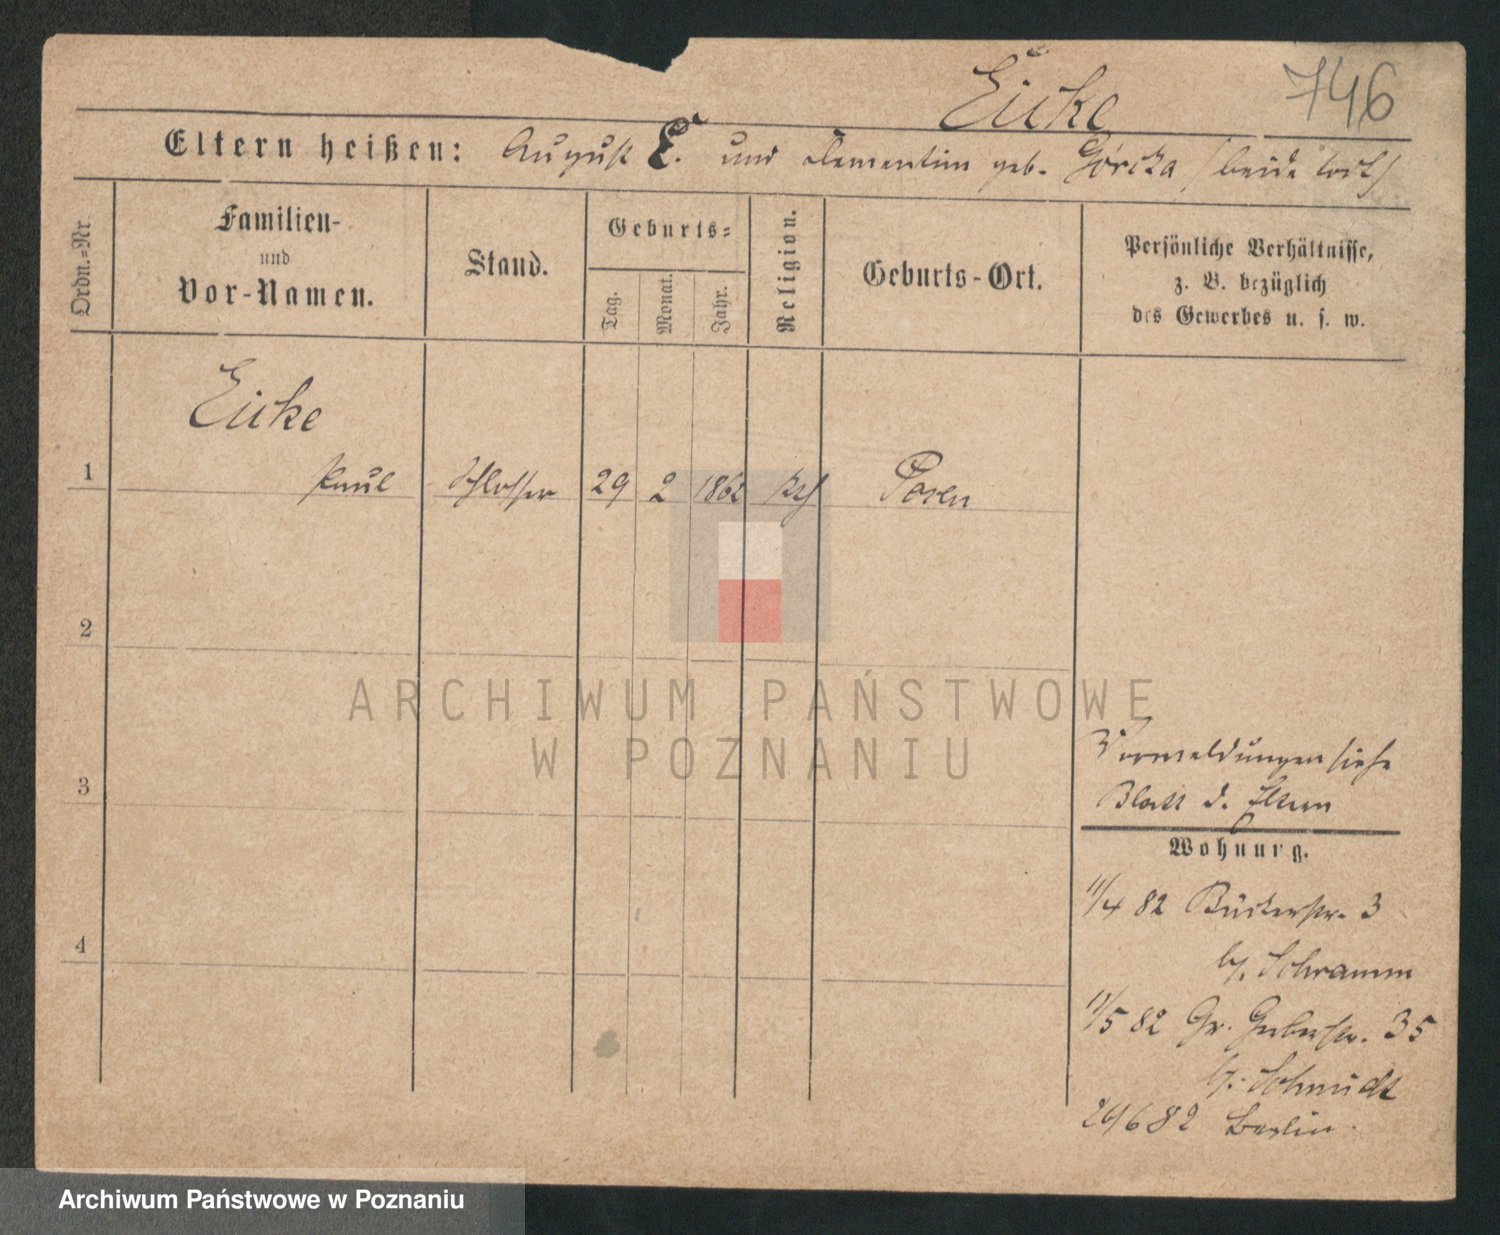 Eicke
746
Eltern heißen: August E. und Clementine geb. Górcka (beide tot)
Ordn.=Nr.
Familien-
und
Vor-Namen.
Stand.
Geburts=
Tag.
Monat.
Jahr.
Religion.
Geburts-Ort.
Persönliche Verhältnisse,
z. B. bezüglich
des Gewerbes u. s. w.
Eicke
1 Paul Schlosser 29 2 1862 Posen
2
3
4
Vormeldungen siehe
Blatt d. Eltern
Wohnung.
11/4 82 Büttelstr. 3
bei Schramm
11/5 82 Gr. Gerberstr. 35
b. Schmidt
29/6 82 Berlin.
ARCHIWUM PAŃSTWOWE
W POZNANIU
Archiwum Państwowe w Poznaniu